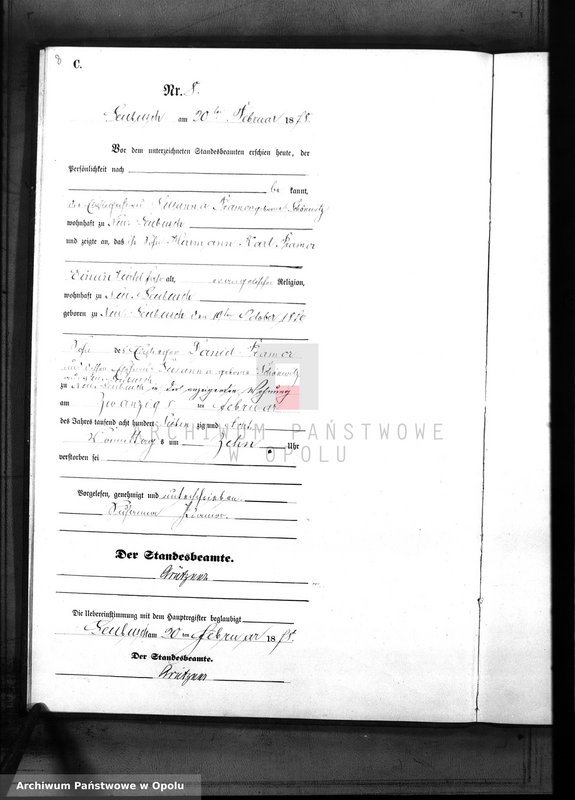 8
C.
Nr. 8.
Leubusch am 20ten Februar 1878.
Vor dem unterzeichneten Standesbeamten erschien heute, der
Persönlichkeit nach
be kannt,
Susanna Kramer geborene
wohnhaft zu Neu Leubusch
und zeigte an, daß ihr Sohn Hermann Karl Kramer
alt, evangelischer Religion,
wohnhaft zu Neu Leubusch
geboren zu Neu Leubusch den October 1876
Sohn des Daniel Kramer
und dessen Susanna geborene
zu Neu Leubusch in der Wohnung
am Zwanzigs ten Februar
des Jahres tausend acht hundert sieben zig und acht
Vormittags um Zehn Uhr
verstorben sei
Vorgelesen, genehmigt und unterschrieben
Susanna Kramer
Der Standesbeamte.
Die Uebereinstimmung mit dem Hauptregister beglaubigt
Leubusch am 20 ten Februar 1878.
Der Standesbeamte.
ARCHIWUM PAŃSTWOWE
W OPOLU
Archiwum Państwowe w Opolu